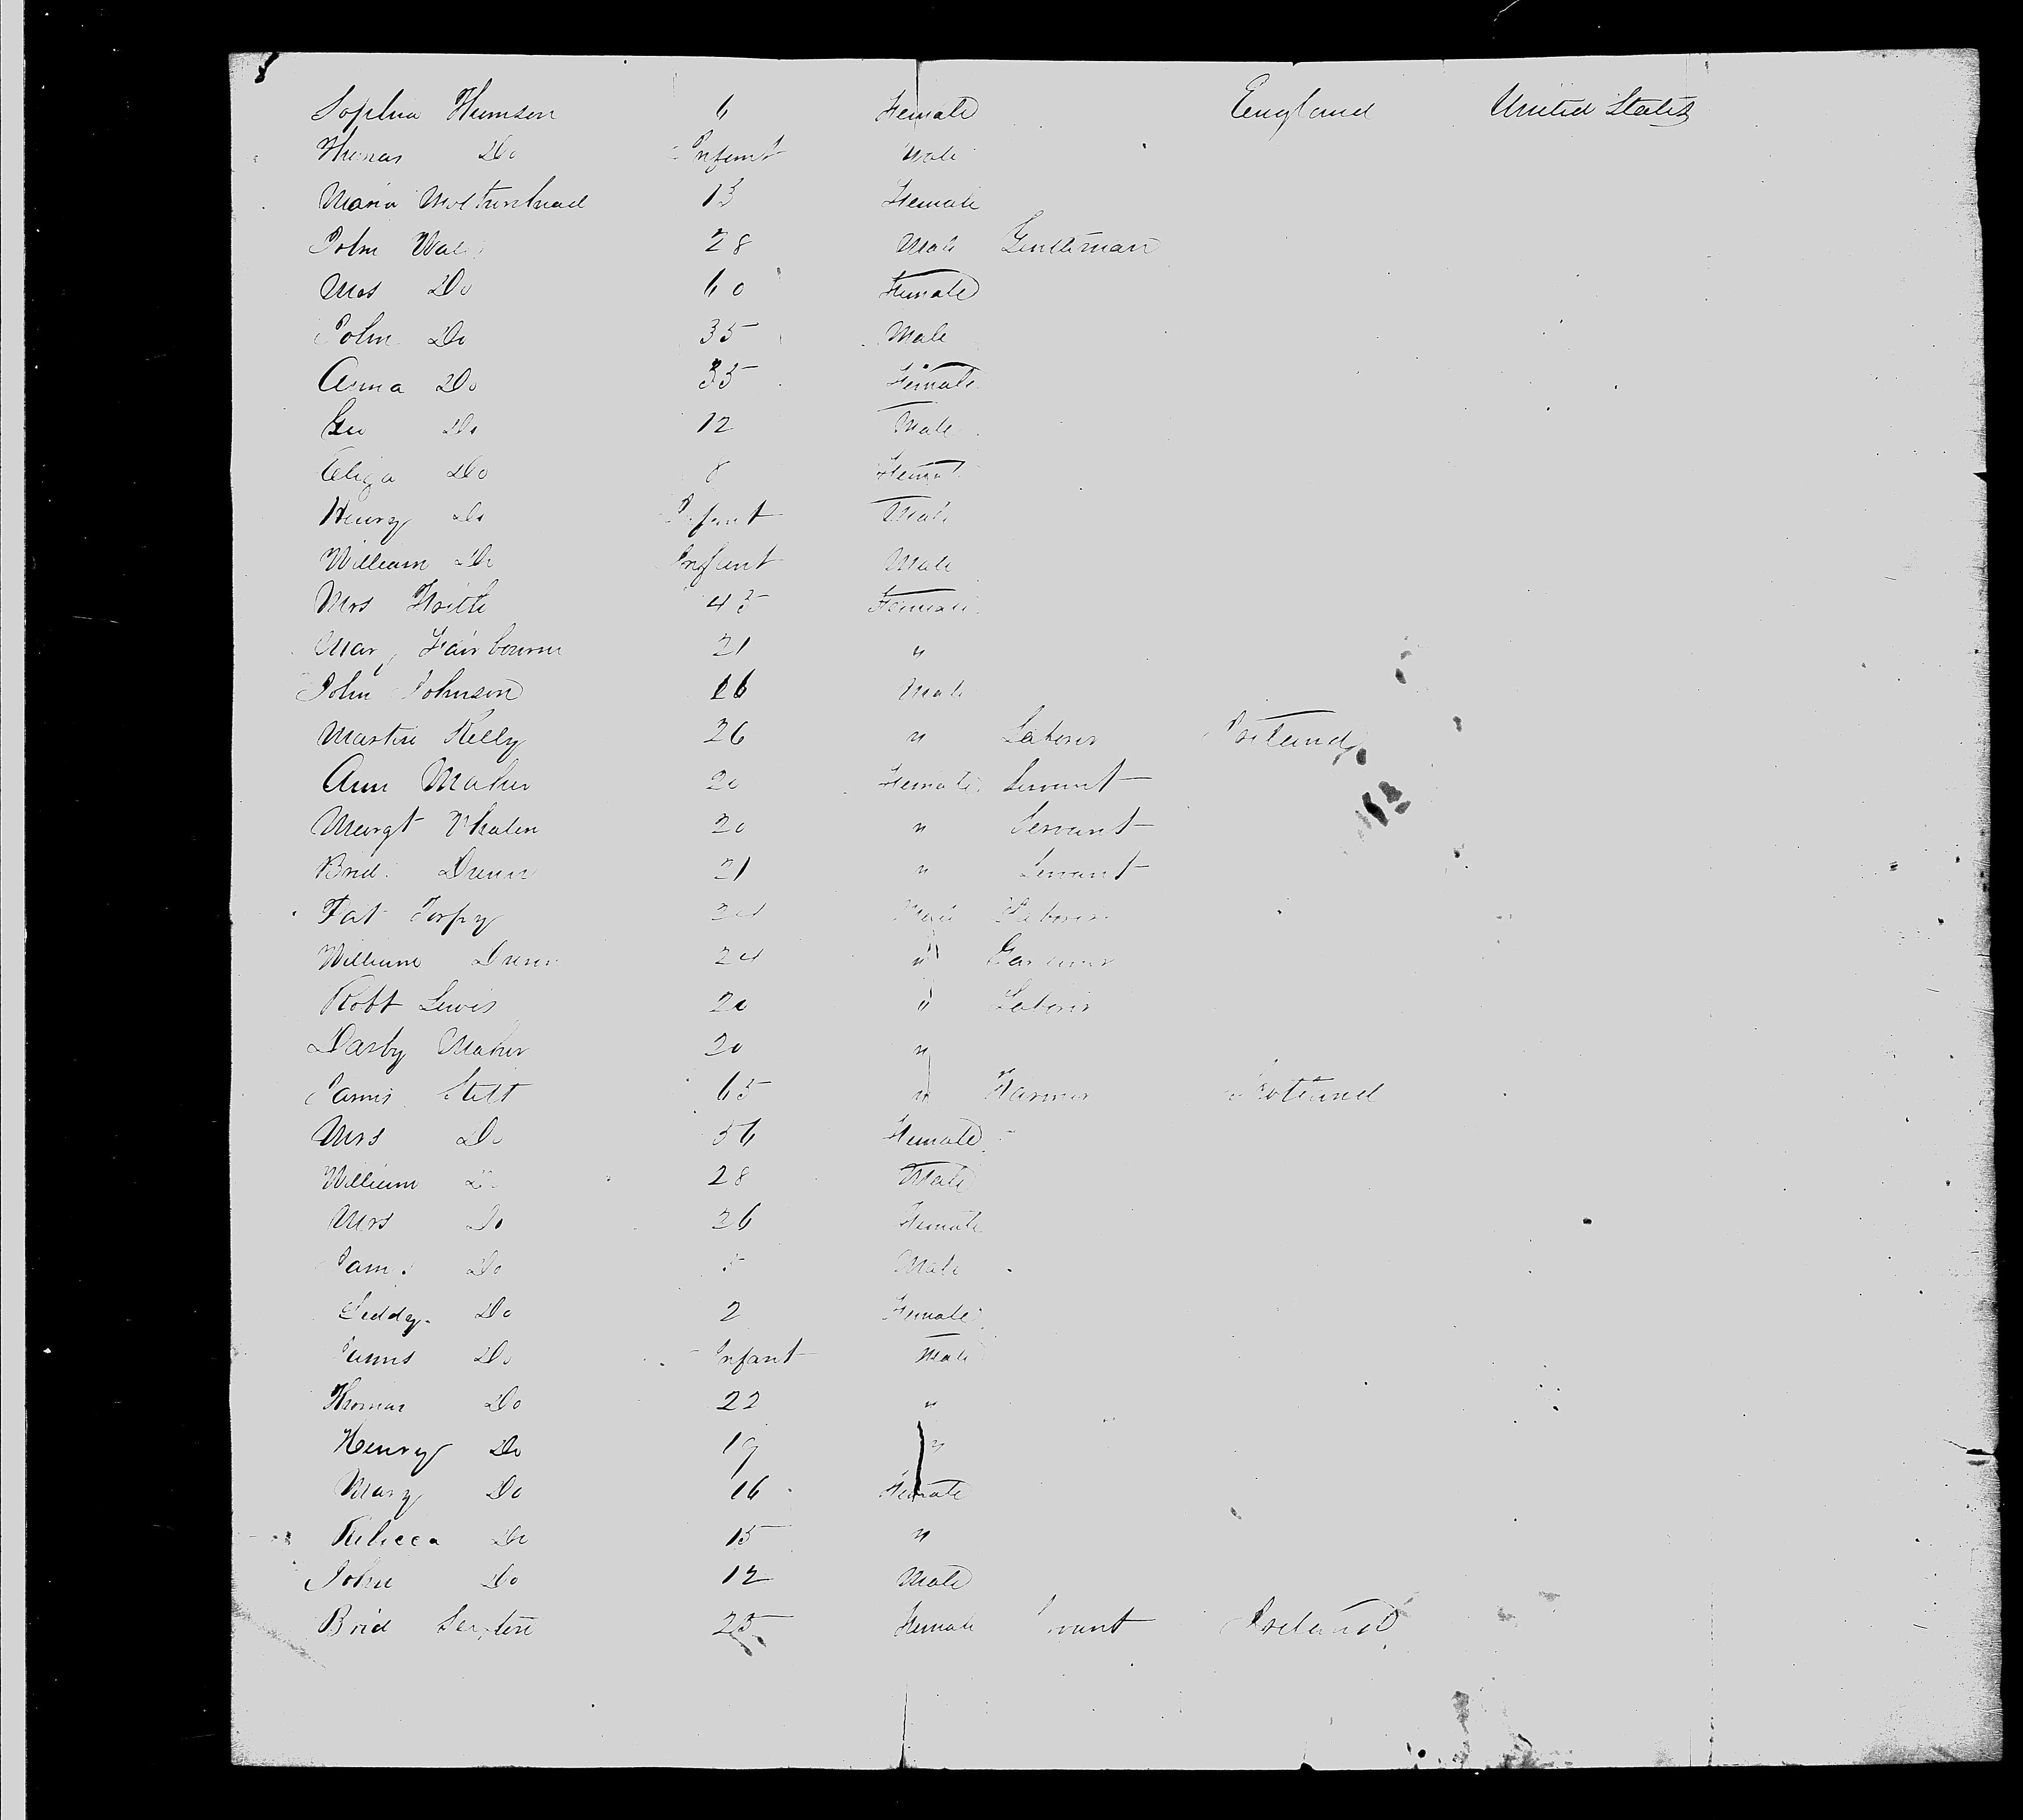 8
Sophia Thomson 6 Female England United States
Thomas Do Infant Male
Maria Motherhead 13 Female
John Wal 28 Male Gentleman
Mrs Do 60 Female
John Do 35 Male
Anna Do 35 Female
Geo Do 12 Male
Eliza Do 8 Female
Henry Do Infant Male
William Do Infant Male
Mrs 45 Female
Mary Fairbourne 21 "
John Johnson 16 Male
Martin Kelly 26 " Laborer Ireland
Ann Maher 20 Female Servant
Margt Whalen 20 " Servant
Brid Dunn 21 " Servant
Pat Torpy 24 Male Laborer
William Dunn 24 " Gardener
Robt Lewis 20 " Laborer
Darby Maher 20 "
James Stett 65 " Farmer Scotland
Mrs Do 56 Female
William Do 28 Male
Mrs Do 26 Female
Do 5 Male
Do 2 Female
James Do Infant Male
Thomas Do 22 "
Henry Do 19 "
Mary Do 16 Female
Rebecca Do 15 "
John Do 12 Male
Brid Sexton 25 Female Servant Ireland